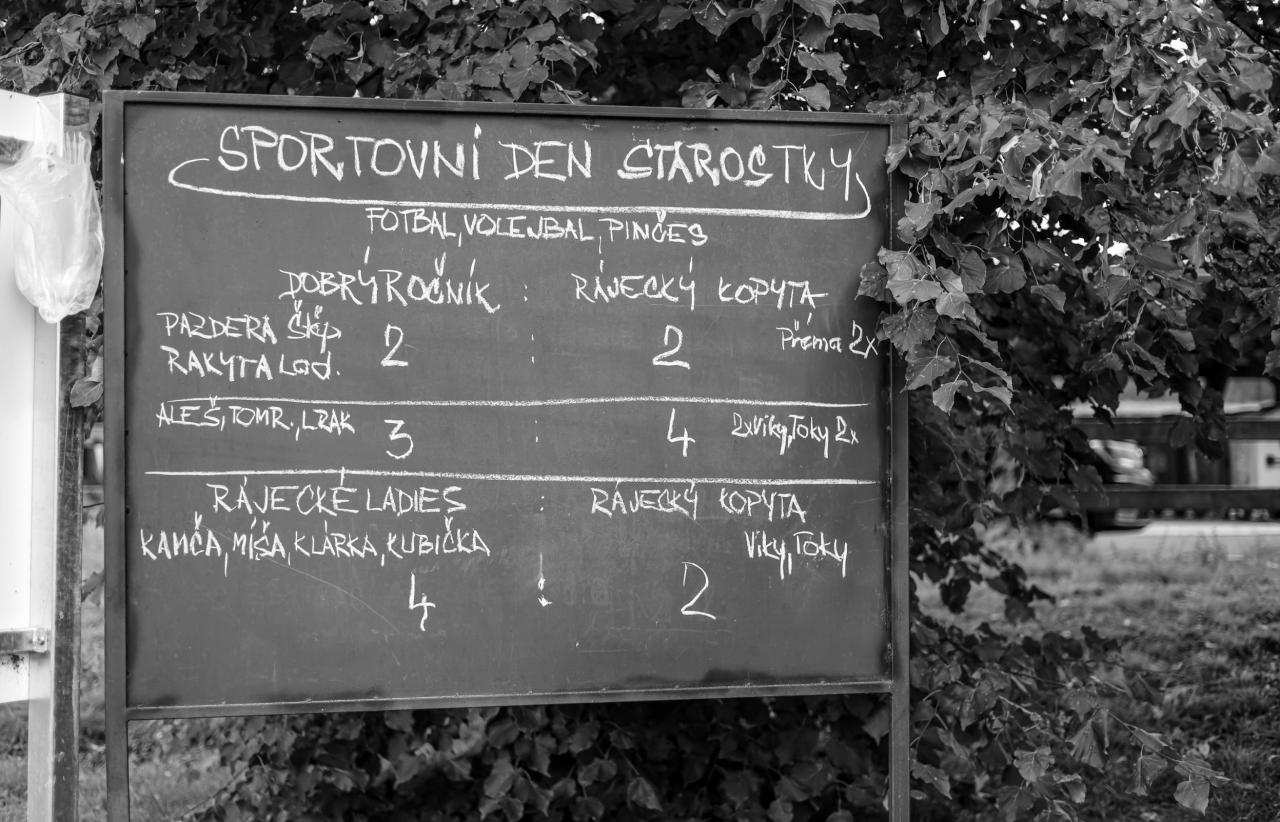 SPORTOVNÍ DEN STAROSTKY
FOTBAL, VOLEJBAL, PINČES
DOBRÝ ROČNÍK : RÁJECKÝ KOPYTA
PAZDERA Štěp.
RAKYTA Lad.
2 : 2
Přéma 2x
ALEŠ, TOMR., LRAK 3 : 4 2xViky, Toky 2x
RÁJECKÉ LADIES : RÁJECKÝ KOPYTA
KANČA, MÍŠA, KLÁRKA, KUBIČKA Viky, Toky
4 : 2